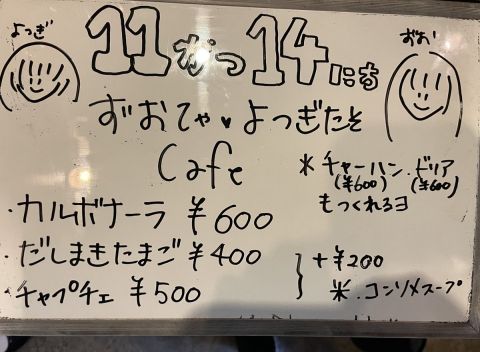 よつぎ
ずお
11がつ14にち
ずおてゃ♥よつぎたそ
Cafe
・カルボナーラ ¥600
・だしまきたまご ¥400
・チャプチェ ¥500
＊チャーハン.ドリア
(¥600) (¥600)
もつくれるヨ
+¥200
米.コンソメスープ